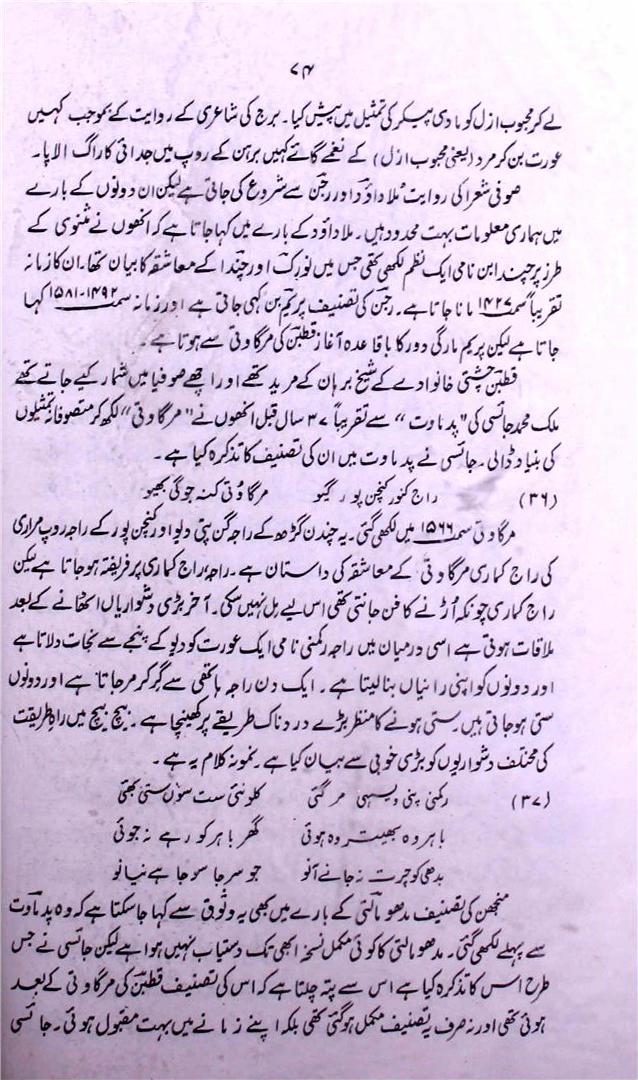 ۷۴
لے کر محبوب ازل کو مادی پیکر کی تمثیل میں پیش کیا۔ برج کی شاعری کے روایت کے بموجب کہیں
عورت بن کر مرد (یعنی محبوب ازل) کے نغمے گائے کہیں برہن کے روپ میں جدائی کا راگ الاپا۔
صوفی شعرا کی روایت ملا داؤد اور رجن سے شروع کی جاتی ہے لیکن ان دونوں کے بارے
میں ہماری معلومات بہت محدود ہیں۔ ملا داؤد کے بارے میں کہا جاتا ہے کہ انھوں نے مثنوی کے
طرز پر چندا بن نامی ایک نظم لکھی تھی جس میں نورک اور چندا کے معاشقہ کا بیان تھا۔ ان کا زمانہ
تقریباً سمت ۱۴۲۷ مانا جاتا ہے۔ رجن کی تصنیف پریم بن کہی جاتی ہے اور زمانہ سمت ۱۴۹۲-۱۵۸۱ کہا
جاتا ہے لیکن پریم مارگی دور کا باقاعدہ آغاز قطبن کی مرگاوتی سے ہوتا ہے۔
قطبن چشتی خانوادے کے شیخ برہان کے مرید تھے اور اچھے صوفیا میں شمار کیے جاتے تھے
ملک محمد جائسی کی "پدماوت" سے تقریباً ۳۷ سال قبل انھوں نے "مرگاوتی" لکھ کر متصوفانہ تمثیلوں
کی بنیاد ڈالی۔ جائسی نے پدماوت میں ان کی تصنیف کا تذکرہ کیا ہے۔
(۳۶) راج کنور کنچن پور گیو مرگاوتی کنہ جوگی بھیو
مرگاوتی سمت ۱۵۶۶ میں لکھی گئی۔ یہ چندن گڑھ کے راجہ گن پتی دیو اور کنچن پور کے راجہ روپ مراری
کی راج کماری مرگاوتی کے معاشقہ کی داستان ہے۔ راجہ، راج کماری پر فریفتہ ہو جاتا ہے لیکن
راج کماری چونکہ اڑنے کا فن جانتی تھی اس لیے مل نہیں سکی۔ آخر بڑی دشواریاں اٹھانے کے بعد
ملاقات ہوتی ہے اسی درمیان میں راجہ رکمنی نامی ایک عورت کو دیو کے پنجے سے نجات دلاتا ہے
اور دونوں کو اپنی رانیاں بنا لیتا ہے۔ ایک دن راجہ ہاتھی سے گر کر مر جاتا ہے اور دونوں
ستی ہو جاتی ہیں۔ ستی ہونے کا منظر بڑے دردناک طریقے پر کھینچا ہے۔ بیچ بیچ میں راہ طریقت
کی مختلف دشواریوں کو بڑی خوبی سے بیان کیا ہے۔ نمونہ کلام یہ ہے۔
(۳۷) رکمنی پنی ویسہی مر گئی کلونتی ست سوں ستی بھئی
باہر وہ بھیتر وہ ہوئی گھر باہر کو رہے نہ جوئی
بدھی کو چرت نہ جانے آنو جو سرجا سو جاہے نیانو
منجھن کی تصنیف مدھو مالتی کے بارے میں بھی یہ وثوق سے کہا جا سکتا ہے کہ وہ پدماوت
سے پہلے لکھی گئی۔ مدھو مالتی کا کوئی مکمل نسخہ ابھی تک دستیاب نہیں ہوا ہے لیکن جائسی نے جس
طرح اس کا تذکرہ کیا ہے اس سے پتہ چلتا ہے کہ اس کی تصنیف قطبن کی مرگاوتی کے بعد
ہوئی تھی اور نہ صرف یہ تصنیف مکمل ہو گئی تھی بلکہ اپنے زمانے میں بہت مقبول ہوئی۔ جائسی